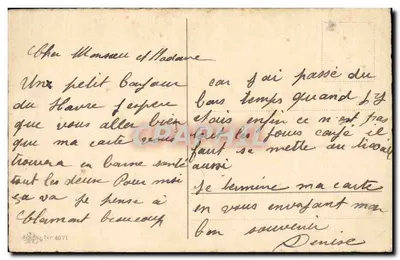 Cher Monsieur et Madame
Un petit bonjour
du Havre j'espere
que vous aller bien
que ma carte vous
trouvera en bonne santé
tout les deux Pour moi
ça va je pense à
Blamont beaucoup
car j'ai passé du
bons temps quand j'y
etais enfin ce n'est pas
les jours il
faut se mettre au travail
aussi
Je termine ma carte
en vous envoyant mon
bon souvenir
Denise
CARTHAPOLE